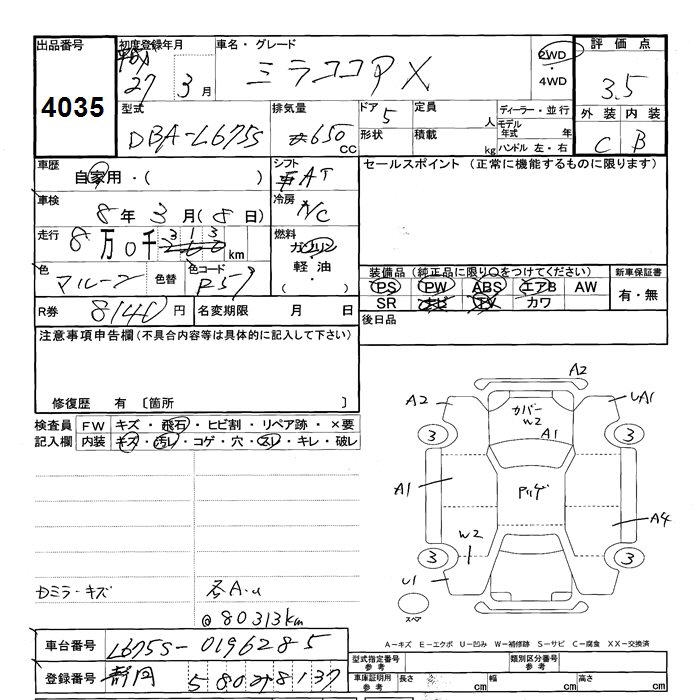 出品番号 初度登録年月 車名・グレード 2WD 評価点
4035 平成 27 3月 ミラココアX 4WD 3.5
型式 排気量 ドア 5 定員 人 ディーラー・並行 外装 内装
DBA-L675S 650 CC 形状 積載 kg モデル年式 年 ハンドル 左・右 C B
車歴 シフト セールスポイント(正常に機能するものに限ります)
自家用・( ) AT
車検 冷房
8年3月(8日) A/C
走行 燃料
8万0千313km ガソリン
色 色替 色コード 軽油 装備品(純正品に限り○をつけてください) 新車保証書
マルーン R59 ・( ) PS PW ABS エアB AW 有・無
R券 8140円 名変期限 月 日 SR ナビ TV カワ
注意事項申告欄(不具合内容等は具体的に記入して下さい) 後日品
修復歴 有 〔箇所 〕
検査員 FW キズ・飛石・ヒビ割・リペア跡・×要
記入欄 内装 キズ・汚レ・コゲ・穴・スレ・キレ・破レ
A2
A2 カバー W2 UA1
3 A1 3
A1 A4
W2
3 3
U1
スペア
Dミラーキズ
@80313km
A-キズ E-エクボ U-凹み W-補修跡 S-サビ C-腐食 XX-交換済
車台番号 L675S-0196285
登録番号 静岡 580 8137
型式指定番号 参考 類別区分番号 参考
車庫証明用 参考 長さ cm 幅 cm 高さ cm